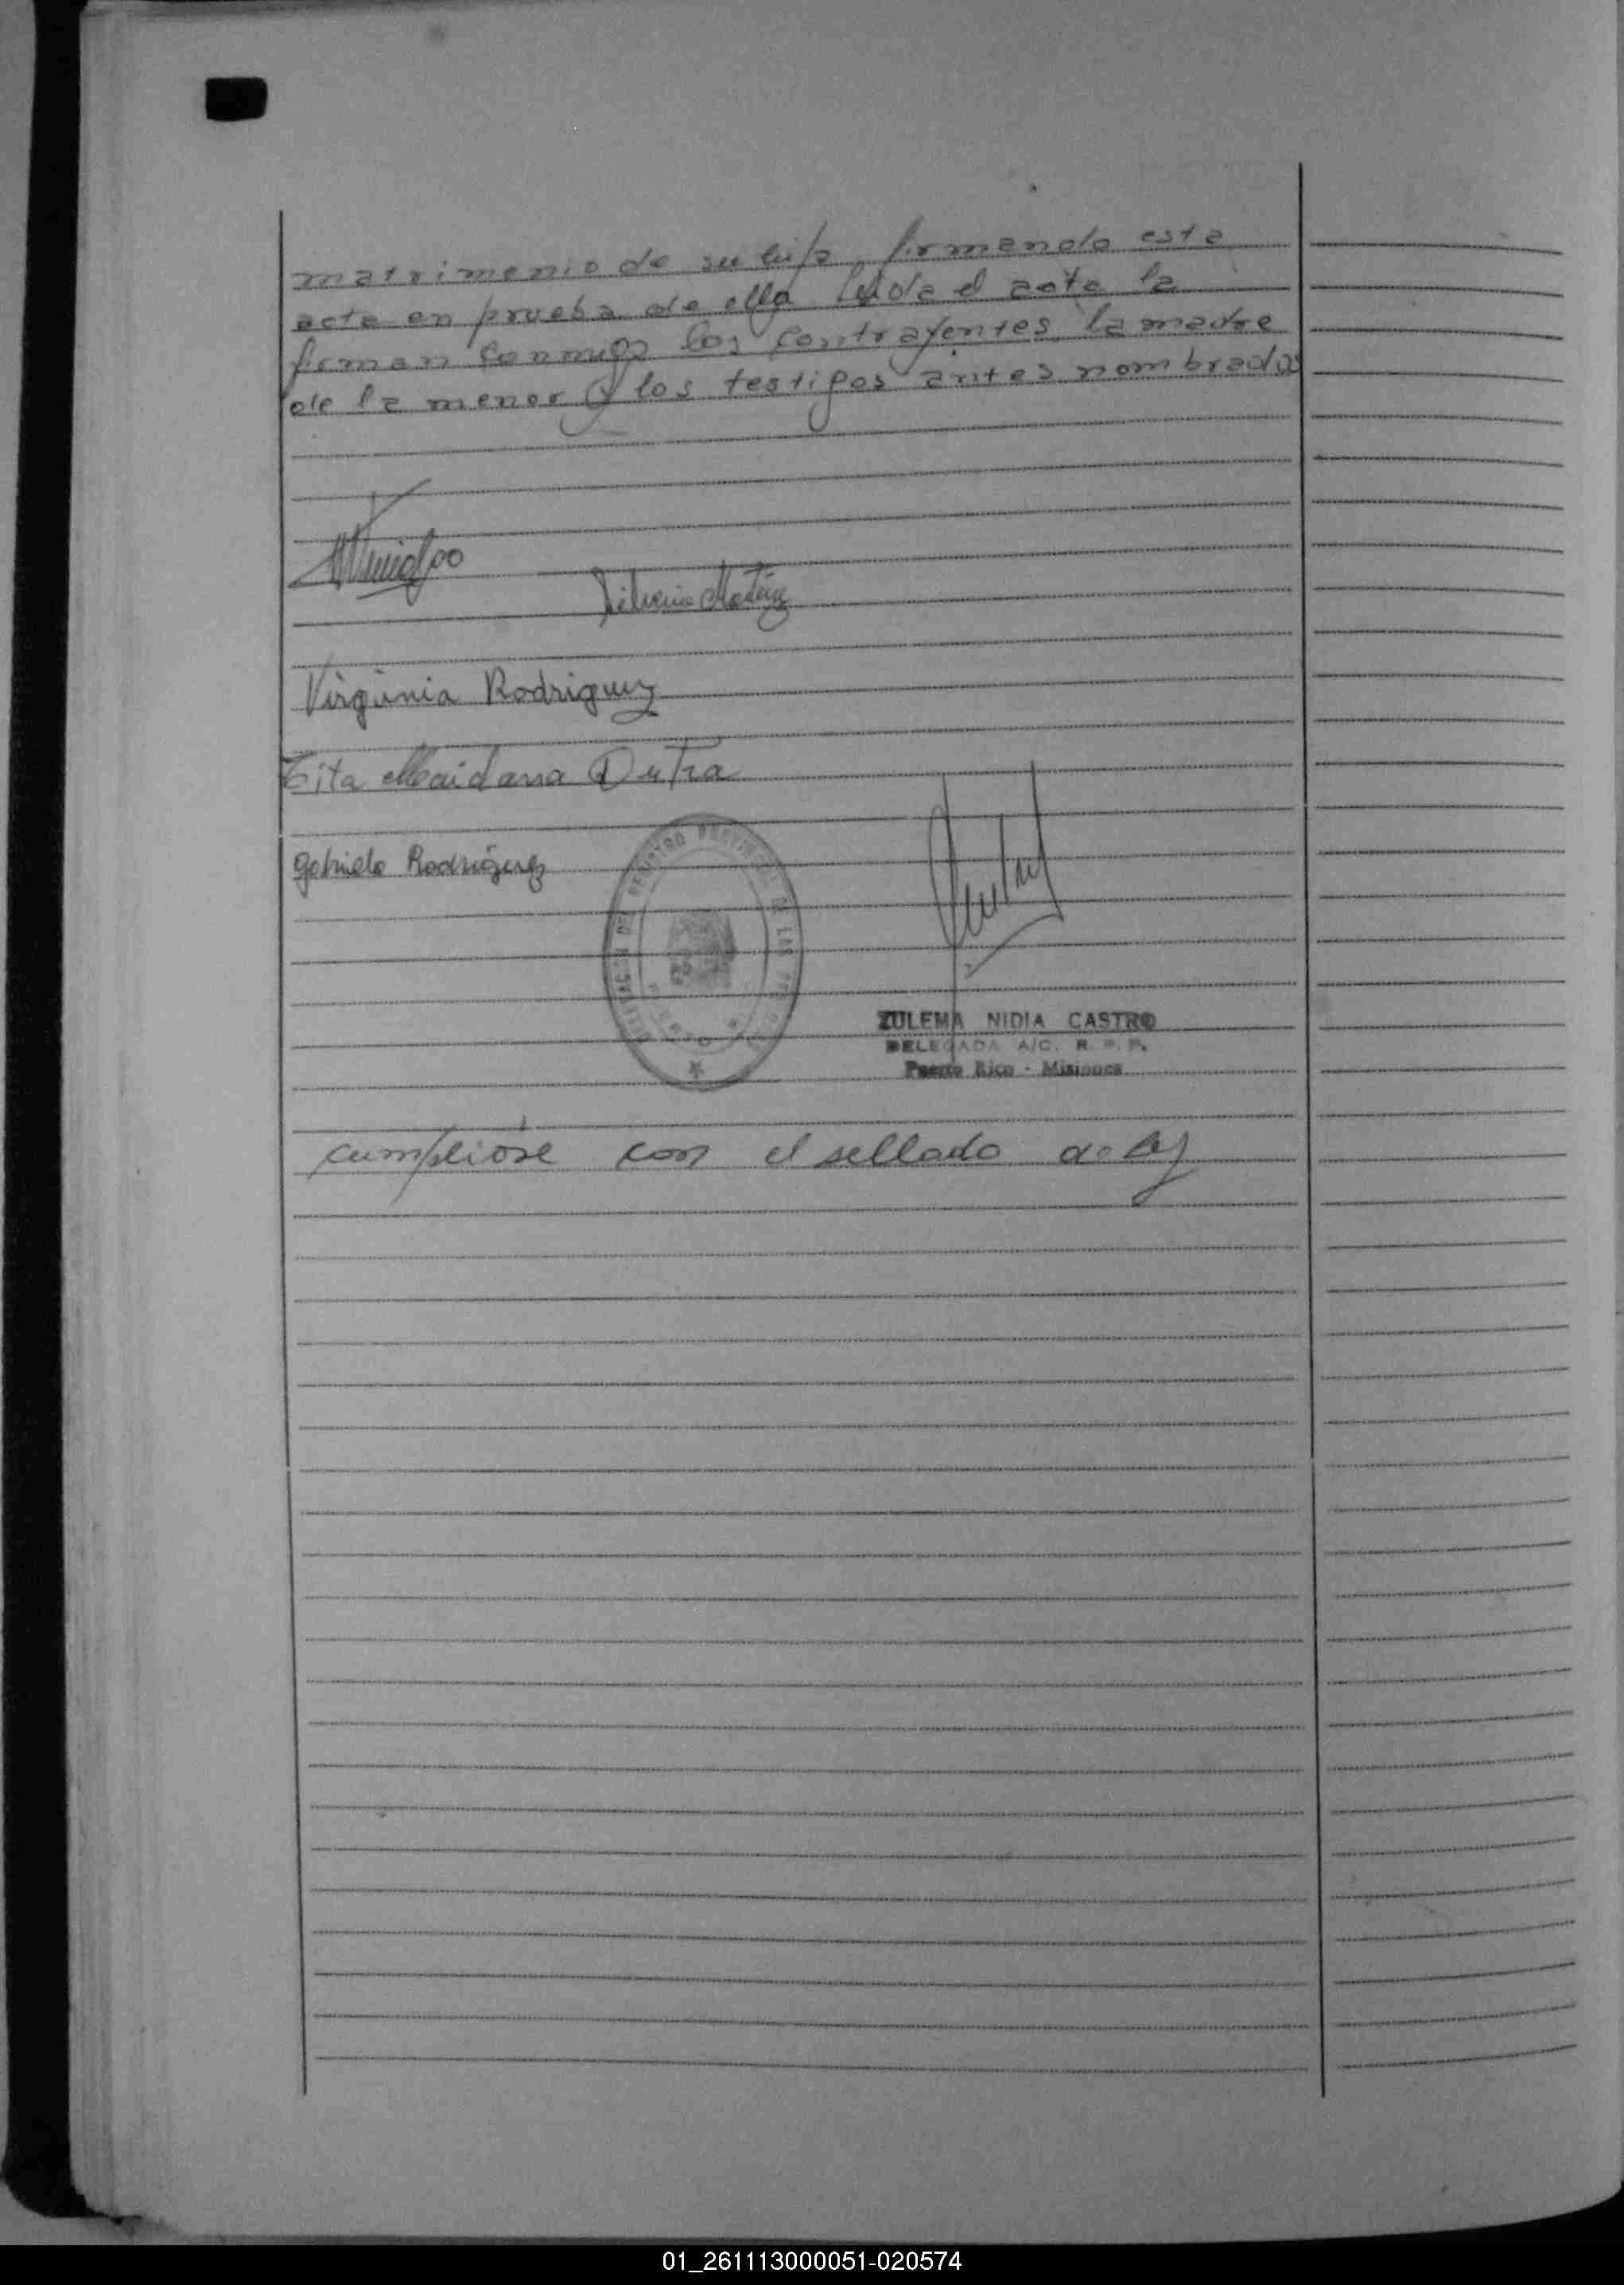 matrimonio de su hija, firmando esta
acta en prueba de ello. Leida el acta la
firman conmigo los contrayentes, la madre
de la menor y los testigos antes nombrados
Virginia Rodriguez
Tita Maidana Dutra
Gabriela Rodriguez
DELEGACION DEL REGISTRO PROVINCIAL DE LAS PERSONAS
ZULEMA NIDIA CASTRO
DELEGADA A/C. R. P. P.
Puerto Rico - Misiones
cumplióse con el sellado de ley
01_261113000051-020574